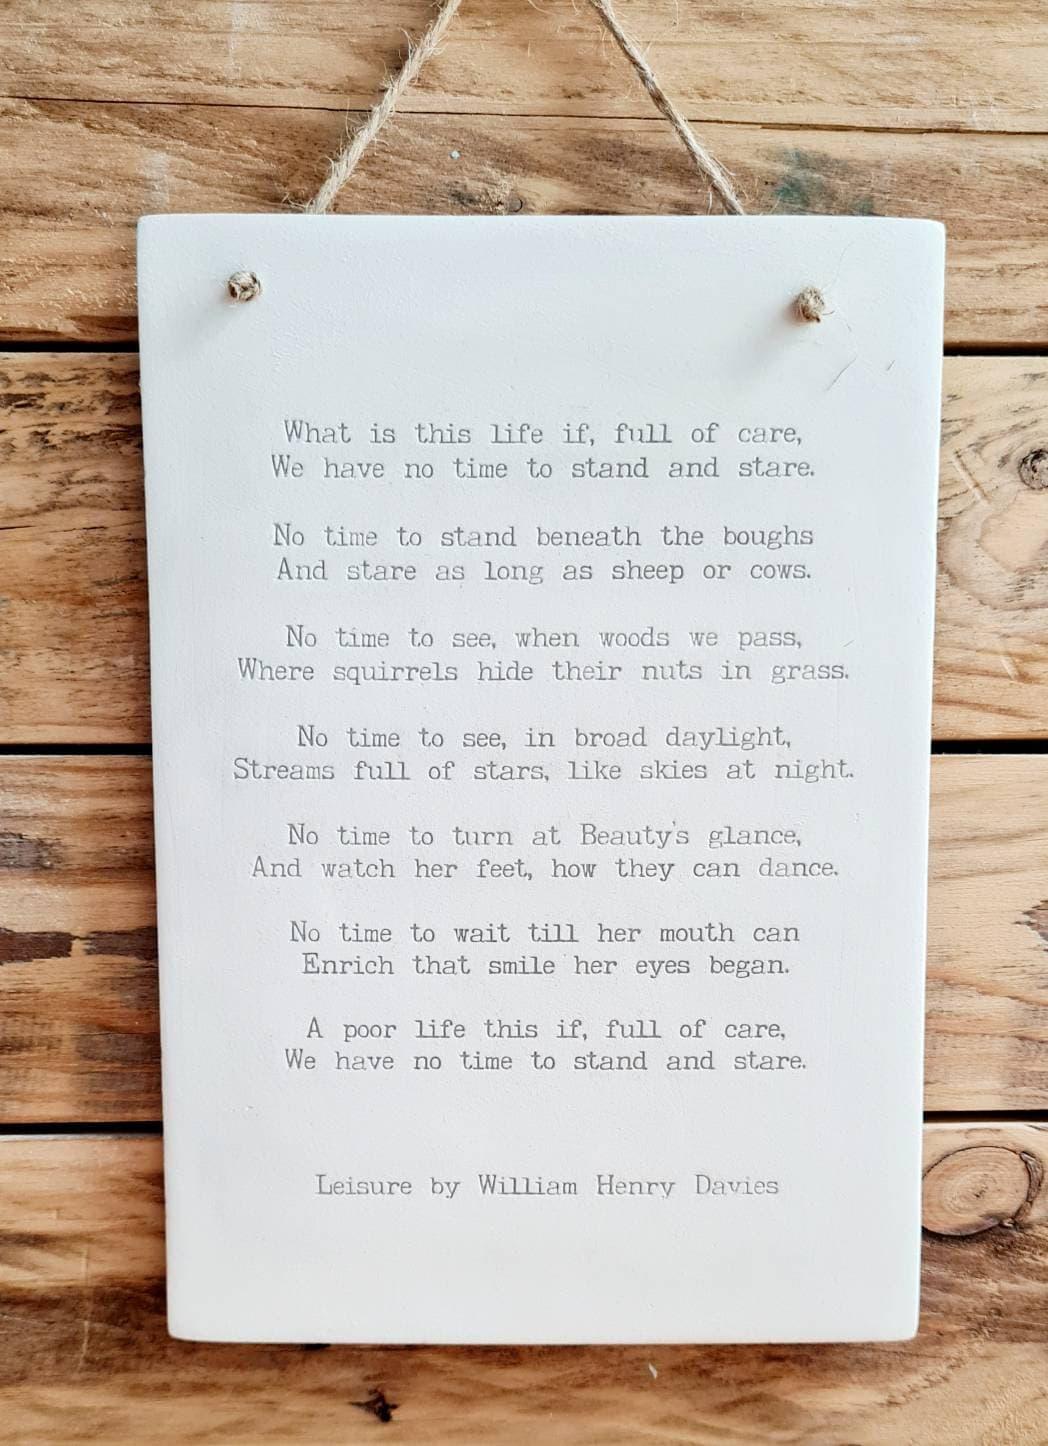 What is this life if, full of care,
We have no time to stand and stare.
No time to stand beneath the boughs
And stare as long as sheep or cows.
No time to see, when woods we pass,
Where squirrels hide their nuts in grass.
No time to see, in broad daylight,
Streams full of stars, like skies at night.
No time to turn at Beauty's glance,
And watch her feet, how they can dance.
No time to wait till her mouth can
Enrich that smile her eyes began.
A poor life this if, full of care,
We have no time to stand and stare.
Leisure by William Henry Davies